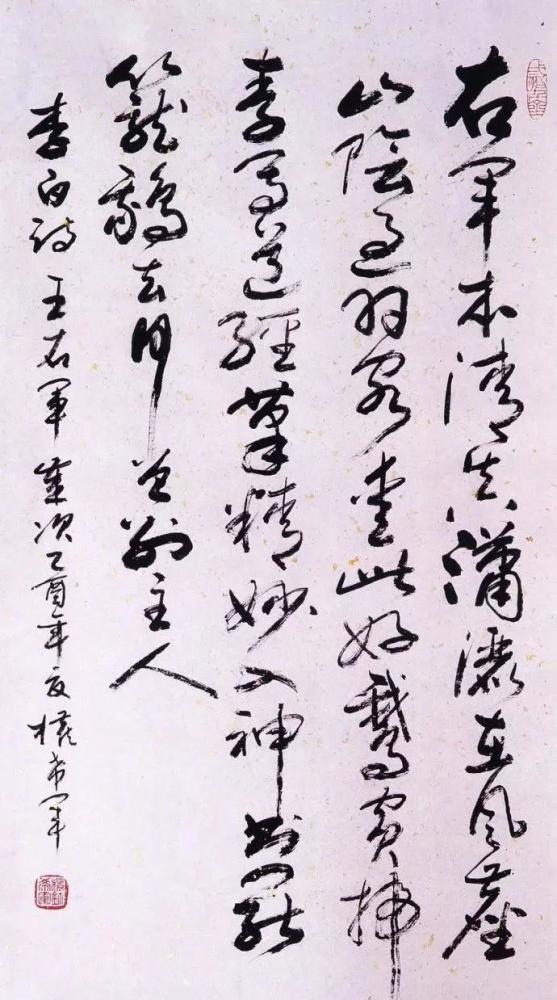 右軍本清真瀟灑在風塵
山陰過羽客愛此好鵝賓掃
素寫道經筆精妙入神書罷
籠鵝去何曾別主人
李白詩 王右軍 歲次乙酉年夏 權希軍